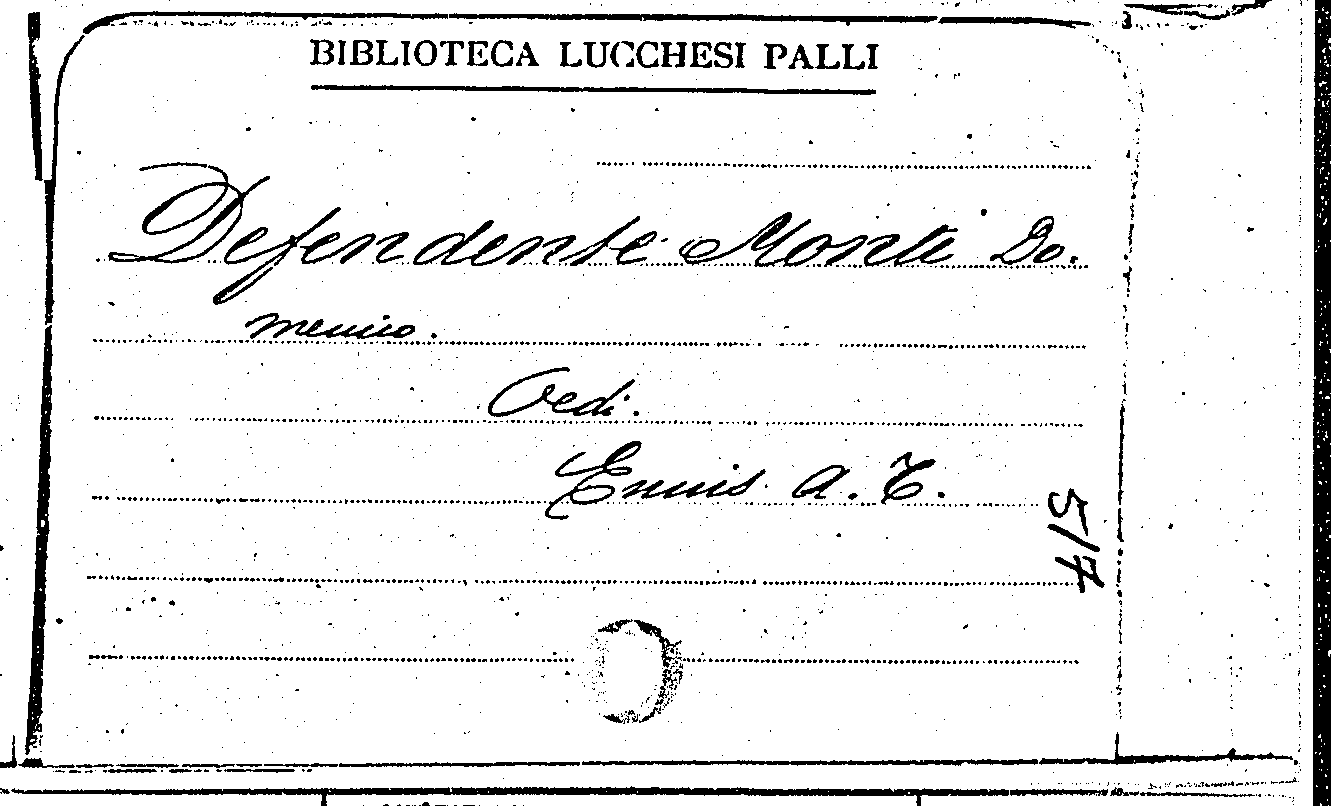 BIBLIOTECA LUCCHESI PALLI
Defendente Monti Do.
menico.
Vedi.
Ennis A. T.
517